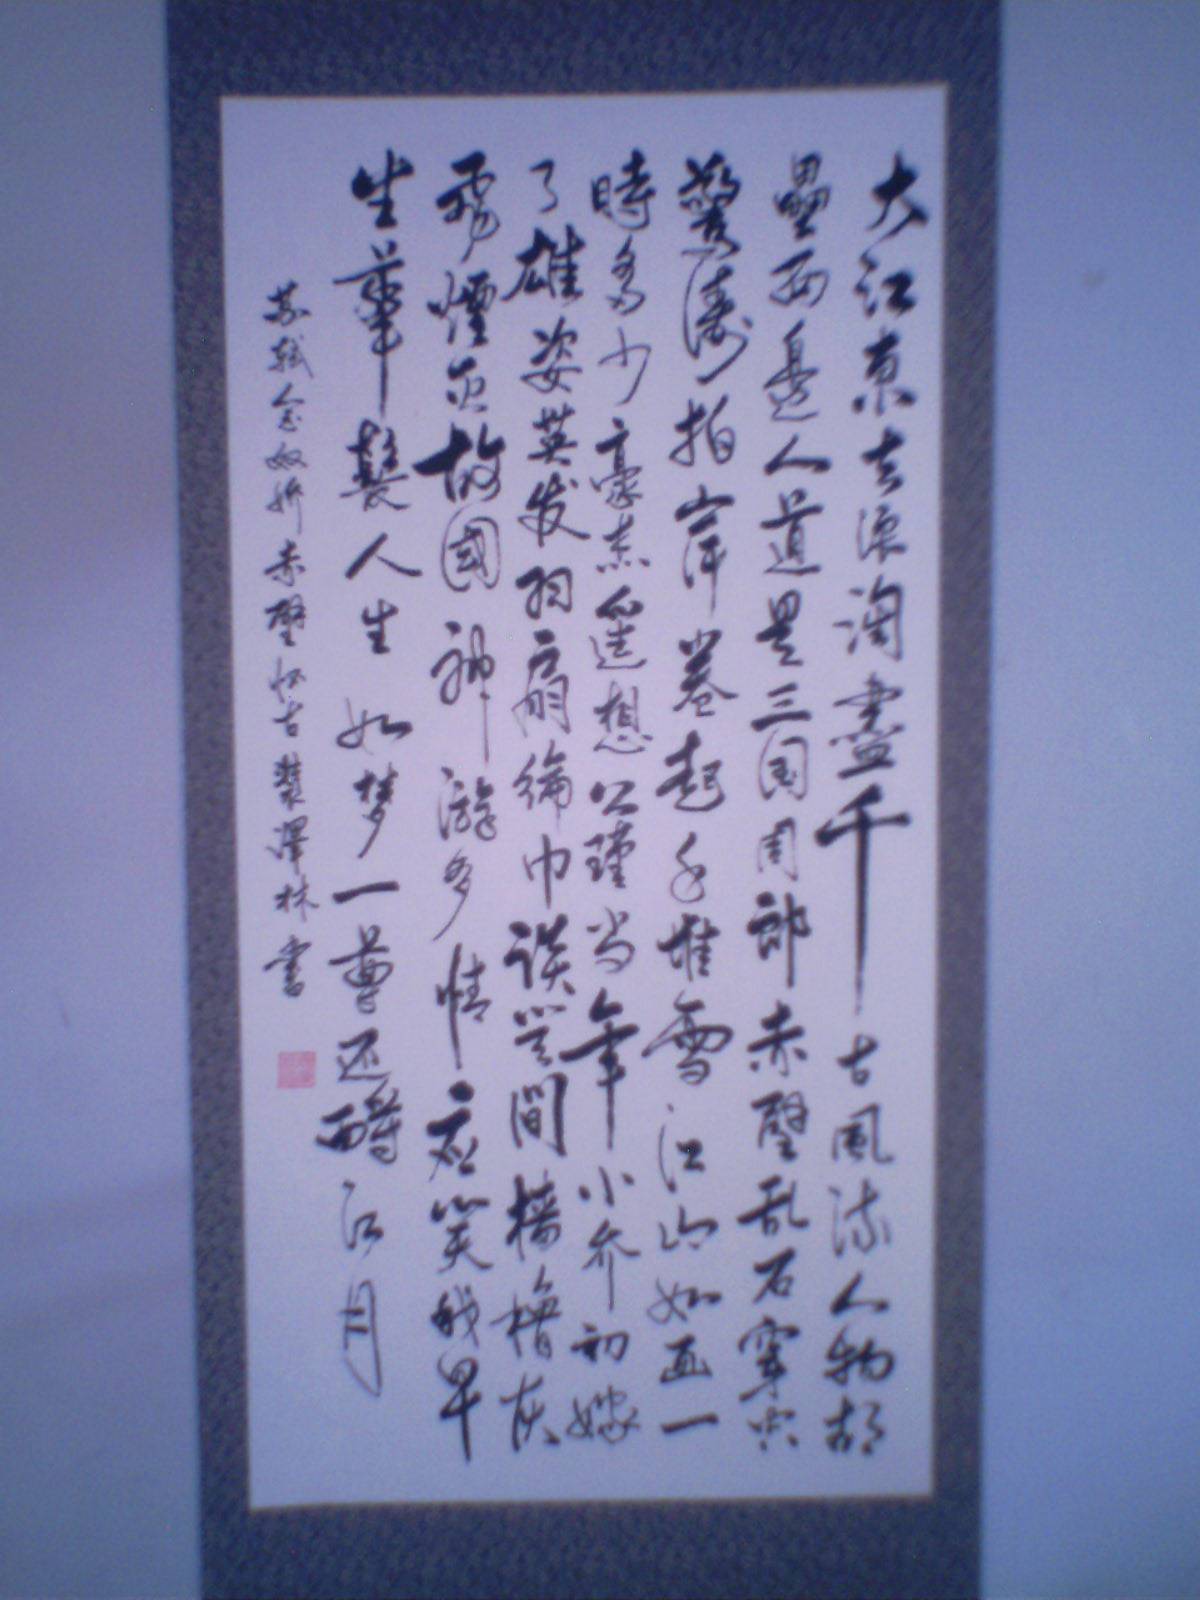 大江東去浪淘盡千古風流人物故
壘西邊人道是三国周郎赤壁乱石穿空
驚濤拍岸卷起千堆雪江山如画一
時多少豪杰遥想公瑾当年小乔初嫁
了雄姿英发羽扇綸巾談笑間檣櫓灰
飛煙灭故國神游多情应笑我早
生華髮人生如梦一尊还酹江月
苏轼念奴娇赤壁怀古裴澤林書